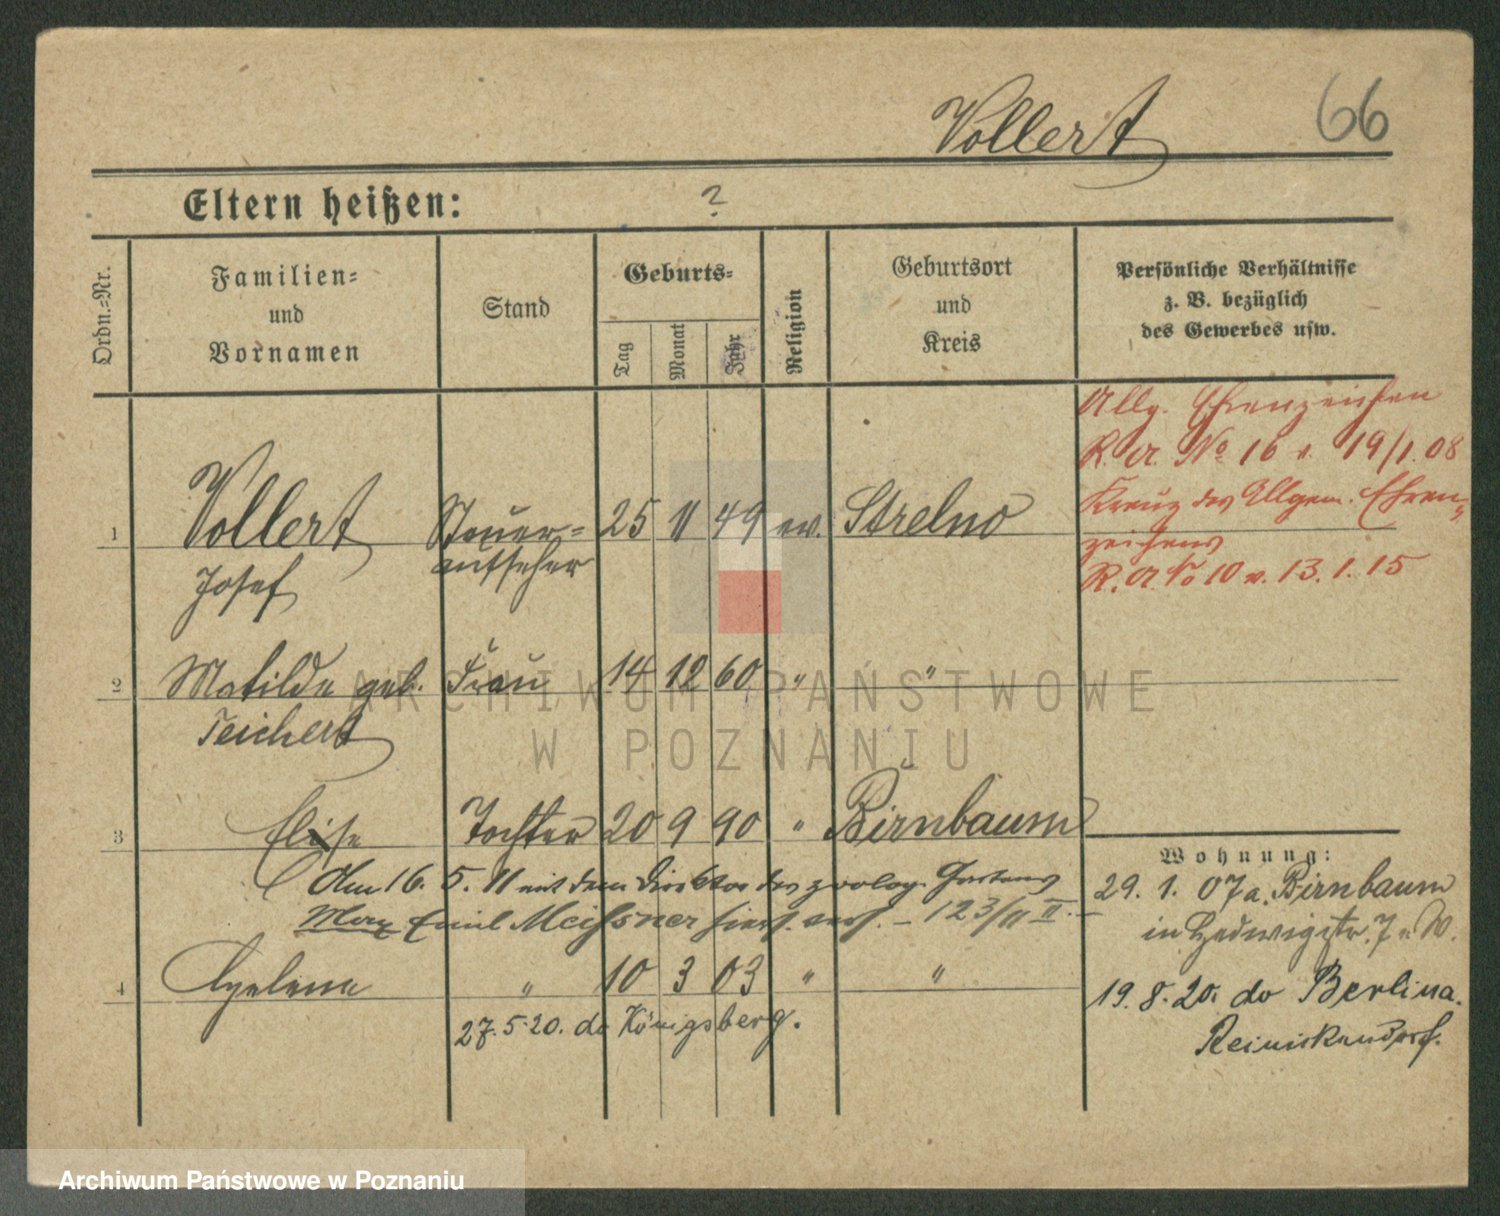 Vollert
66
Eltern heißen:
?
Ordn.-Nr.
Familien-
und
Vornamen
Stand
Geburts-
Tag
Monat
Jahr
Religion
Geburtsort
und
Kreis
Persönliche Verhältnisse
z. B. bezüglich
des Gewerbes usw.
Allg. Ehrenzeichen
R. A. No 16 v. 19/1. 08
Kreuz des Allgem. Ehren-
zeichens
R. A. No 10 v. 13. 1. 15
1 Vollert Steuer- 25 11 49 ev. Strelno
Josef aufseher
2 Matilde geb. Frau 14 12 60 " "
Teichert
3 Elise Tochter 20 9 90 " Birnbaum
Am 16. 5. 11 mit dem Direktor des zoolog. Gartens
Max Emil Meißner hier verh. – 123/11 II. –
4 Helena " 10 3 03 " "
27. 5. 20. do Königsberg.
Wohnung:
29. 1. 07 a. Birnbaum
in Hedwigstr. 7 W.
19. 8. 20. do Berlin a.
Reinickendorf.
ARCHIWUM PAŃSTWOWE
W POZNANIU
Archiwum Państwowe w Poznaniu